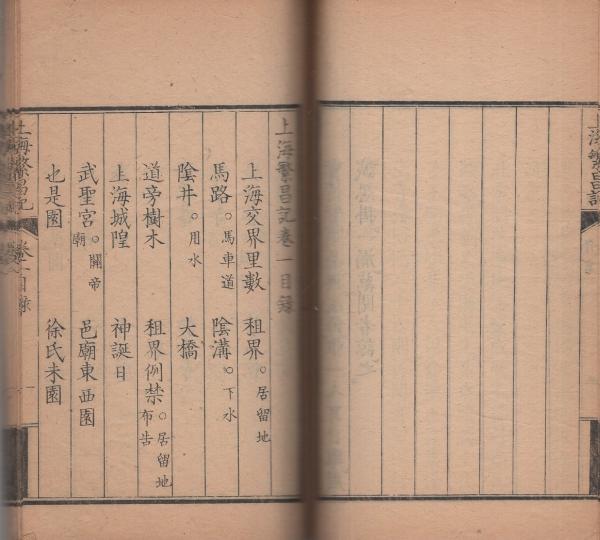 上海繁昌記
上海繁昌記卷一目錄
上海交界里數　租界。居留地
馬路。馬車道　陰溝。下水
陰井。用水　大橋
道旁樹木　租界例禁。居留地布告
上海城隍　神誕日
武聖宮。關帝廟　邑廟東西園
也是園　徐氏未園
上海繁昌記　卷一目錄